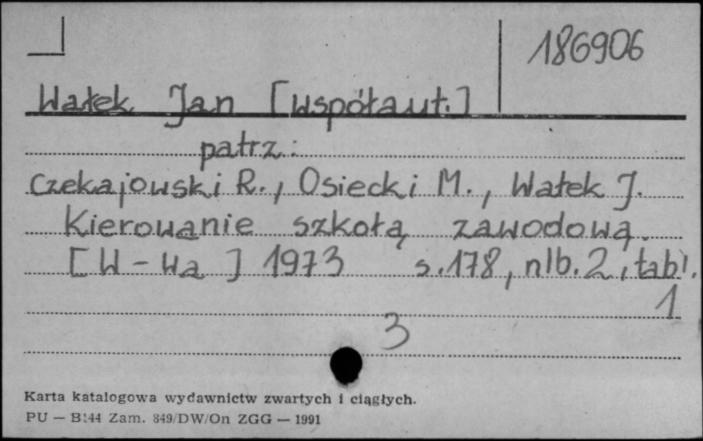 186906
Wałek Jan [współaut.]
patrz:
Czekajowski R., Osiecki M., Wałek J.
Kierowanie szkołą zawodową.
[W-wa] 1973 s.178, nlb.2, tabl.
1
3
Karta katalogowa wydawnictw zwartych i ciągłych.
PU — B144 Zam. 849/DW/On ZGG — 1991